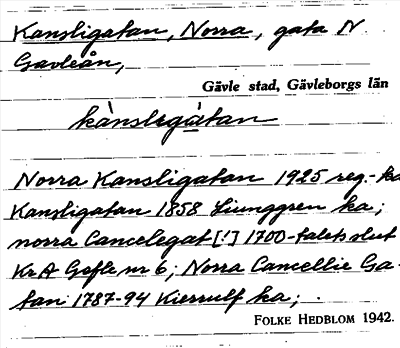 Kansligatan, Norra, gata N
Gavleån,
Gävle stad, Gävleborgs län
kànslegàtan
Norra Kansligatan 1925 reg.-ka
Kansligatan 1858 Ljunggren ka;
norra Cancelegat['] 1700-talets slut
KrA Gefle nr 6; Norra Cancellie Ga-
tan 1787-94 Kierrulf ka;
FOLKE HEDBLOM 1942.